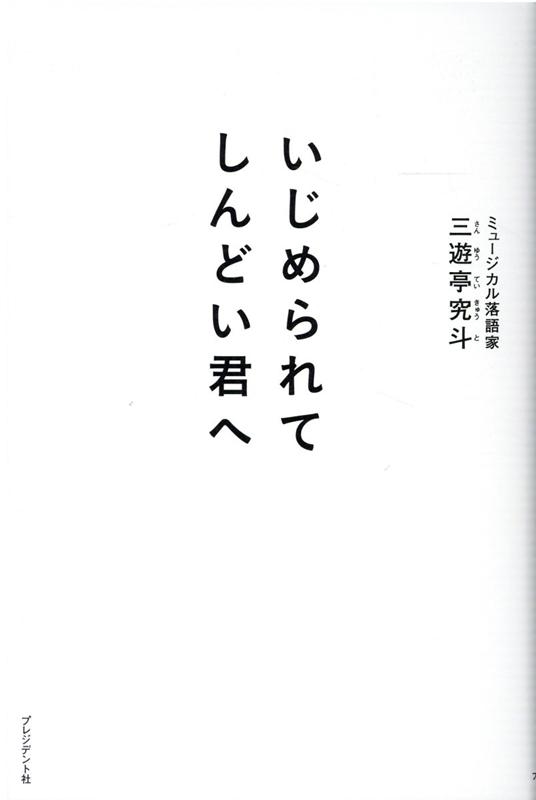 ミュージカル落語家
三遊亭究斗
さんゆうていきゅうと
いじめられて
しんどい君へ
プレジデント社